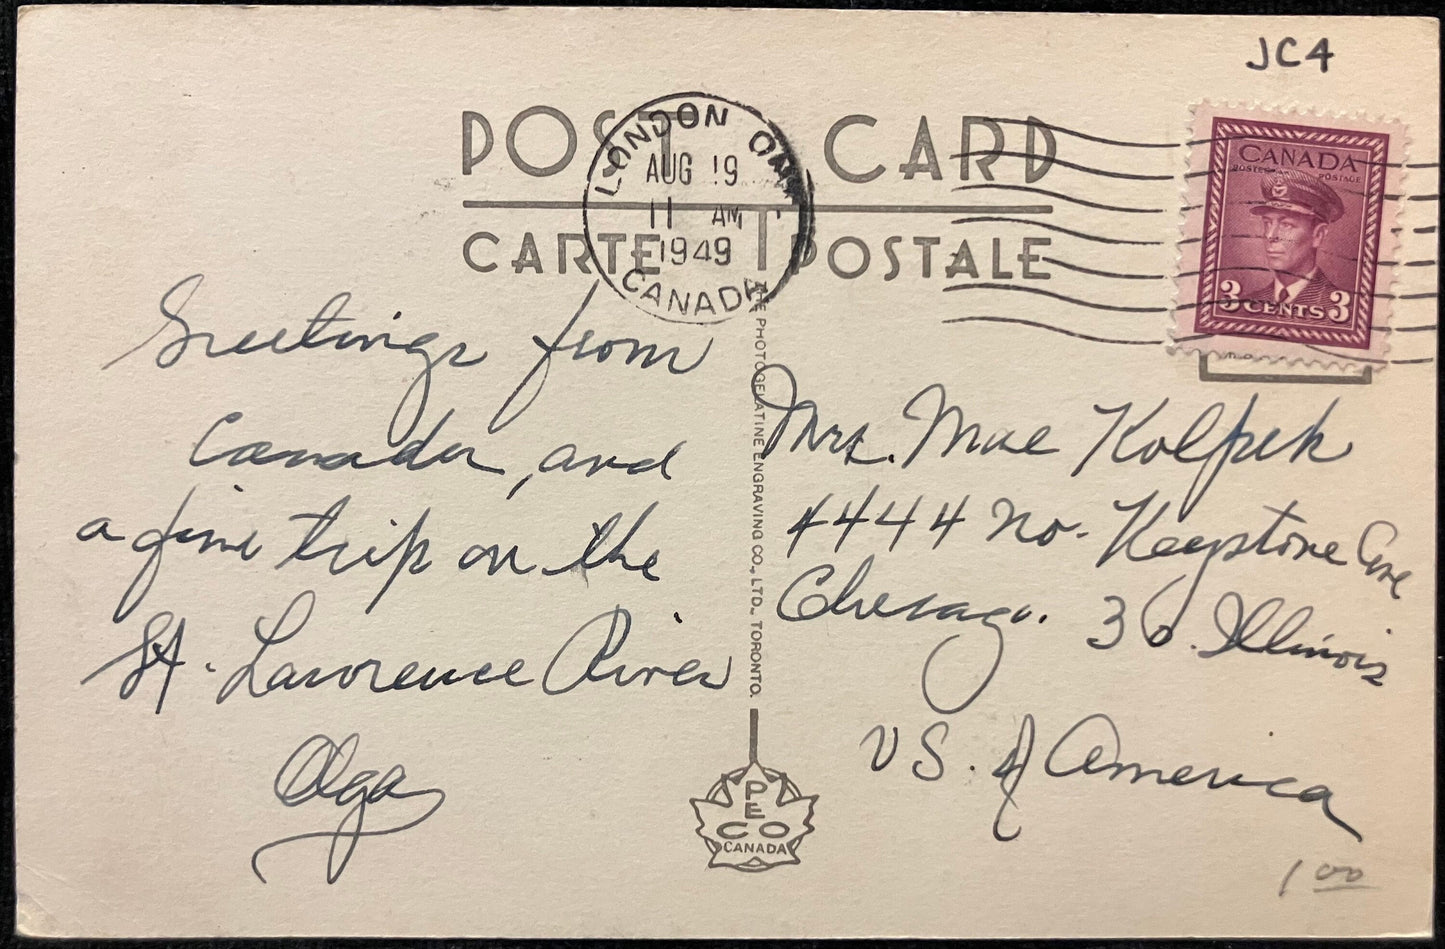 JC4
POST CARD
CARTE POSTALE
LONDON ONT
AUG 19
11 AM
1949
CANADA
CANADA
POSTES POSTAGE
3 CENTS 3
Greetings from
Canada, and
a fine trip on the
St. Lawrence River
Olga
THE PHOTOGELATINE ENGRAVING CO., LTD., TORONTO.
Mrs. Mae Kolpek
4444 No. Keystone Ave
Chicago. 30. Illinois
US. of America
PECO
CANADA
1 00